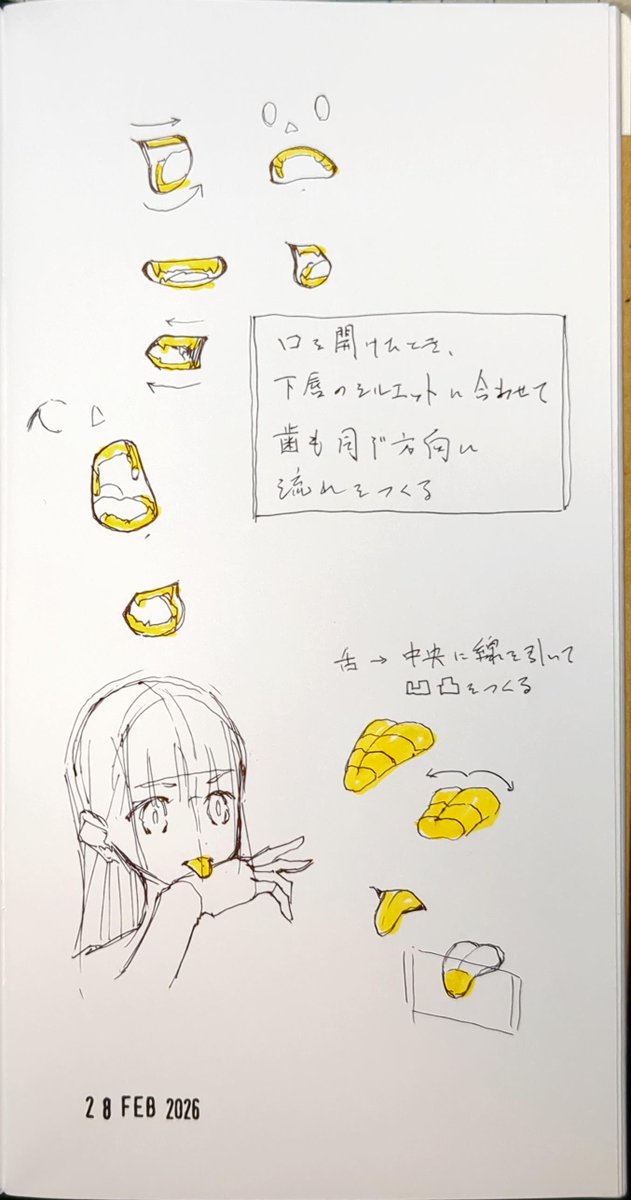 口を開けたとき、
下唇のシルエットに合わせて
歯も同じ方向に
流れをつくる
舌→中央に線を引いて
凹凸をつくる
28 FEB 2026